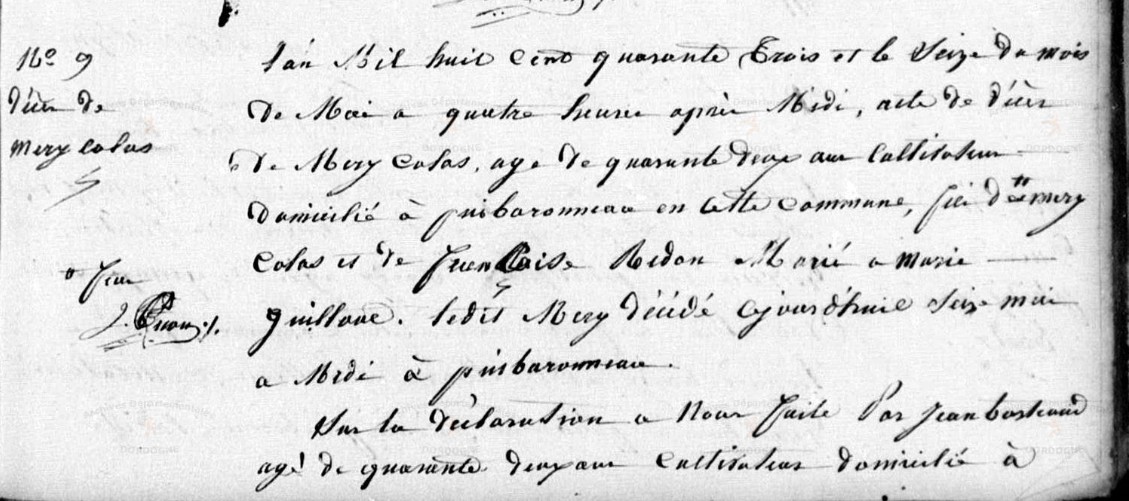 No 9
décès de
mery colas
feu
L'an Mil huit Cent quarante Trois et le Seize du mois
de Mai a quatre heures après Midi, acte de décès
de Mery Colas, age de quarante deux ans Cultivateur
domicilié à puibaronneau en Cette Commune, fils de mery
Colas et de françoise Redon Marié a marie
guillone. ledit Mery décédé ajourd'huie Seize mai
a Midi à puibaronneau.
Sur la déclaration a Nous faite Par Jean bertrand
agé de quarante deux ans Cultivateur domicilié à